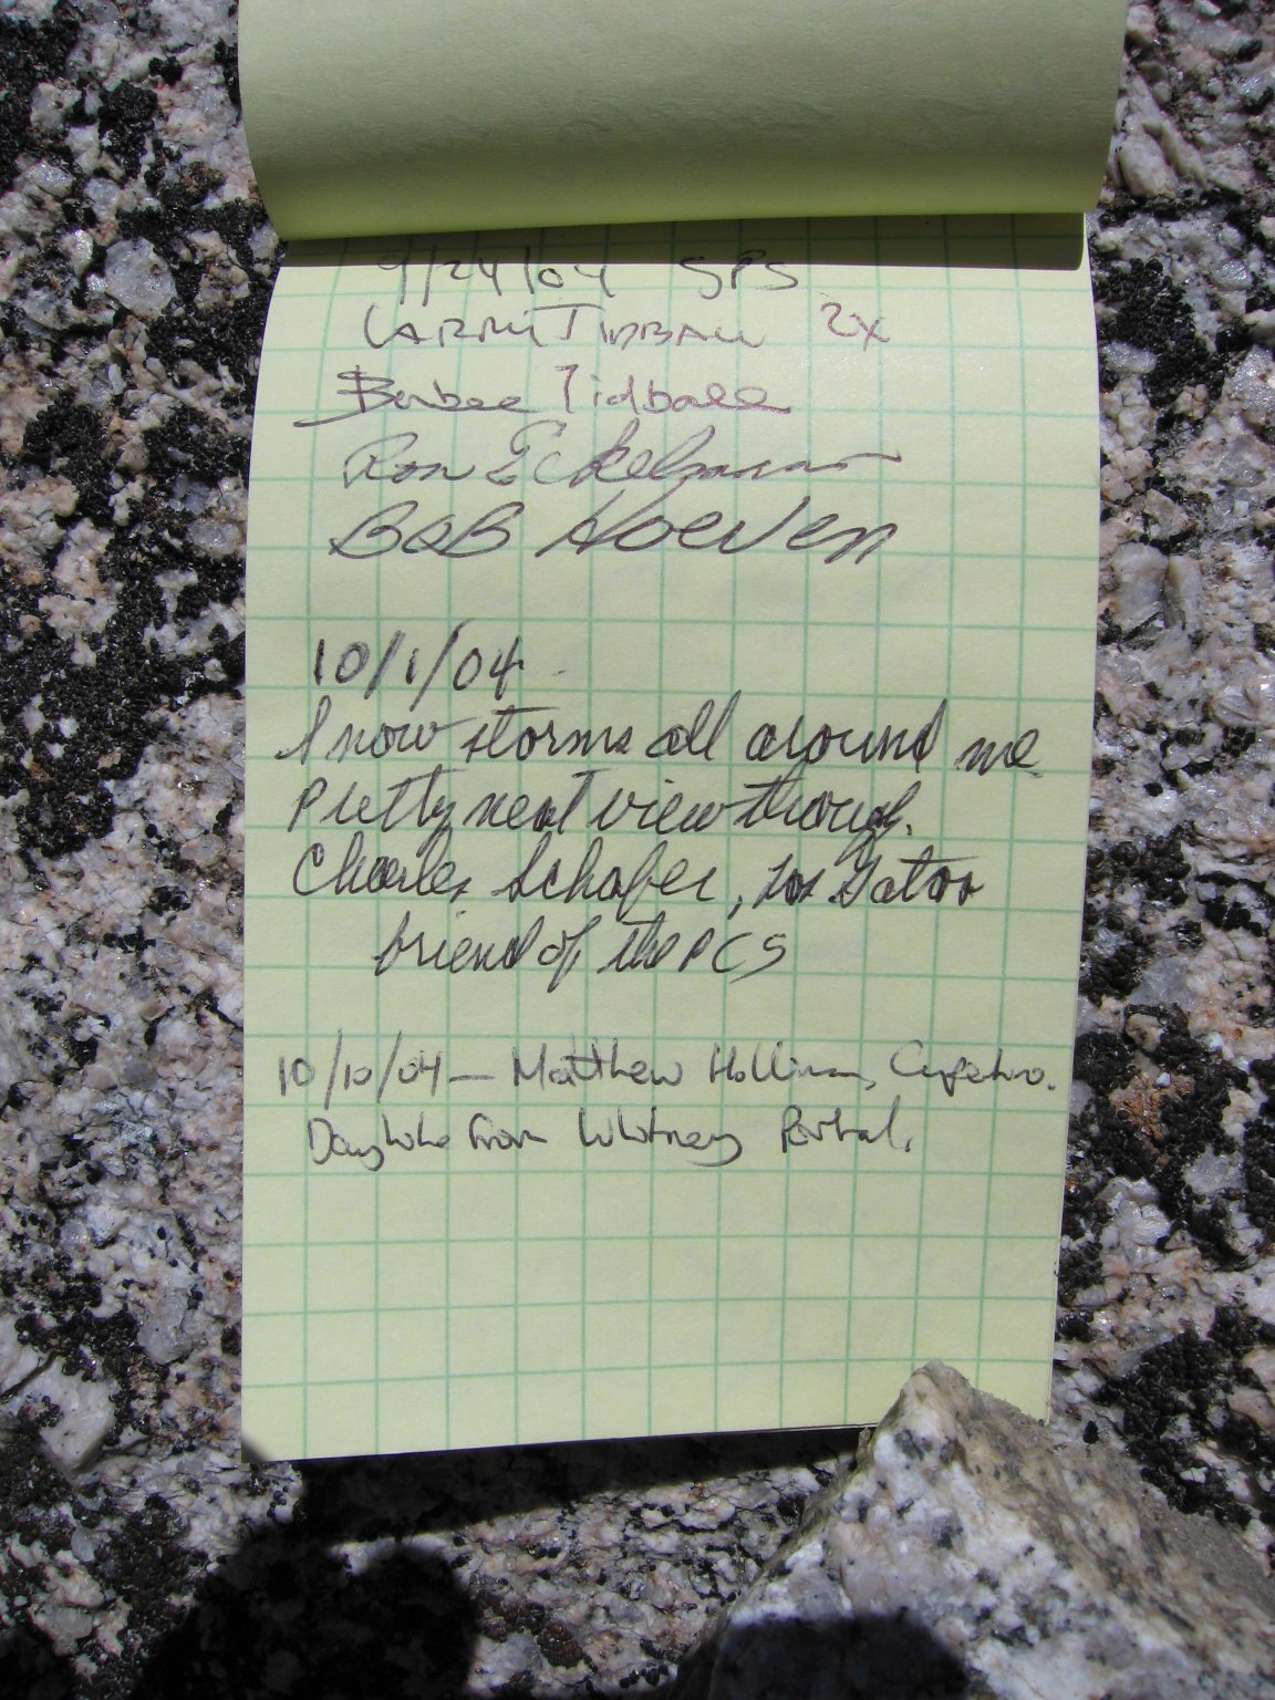 9/24/04 SPS
LARRY TIDBALL 2X
Barbee Tidball
Ron Eckelmann
BOB Hoeven
10/1/04
Snow storms all around me
Pretty neat view though.
Charles Schafer, Los Gatos
friend of the PCS
10/10/04 – Matthew Holliman, Cupertino.
Dayhike from Whitney Portal.